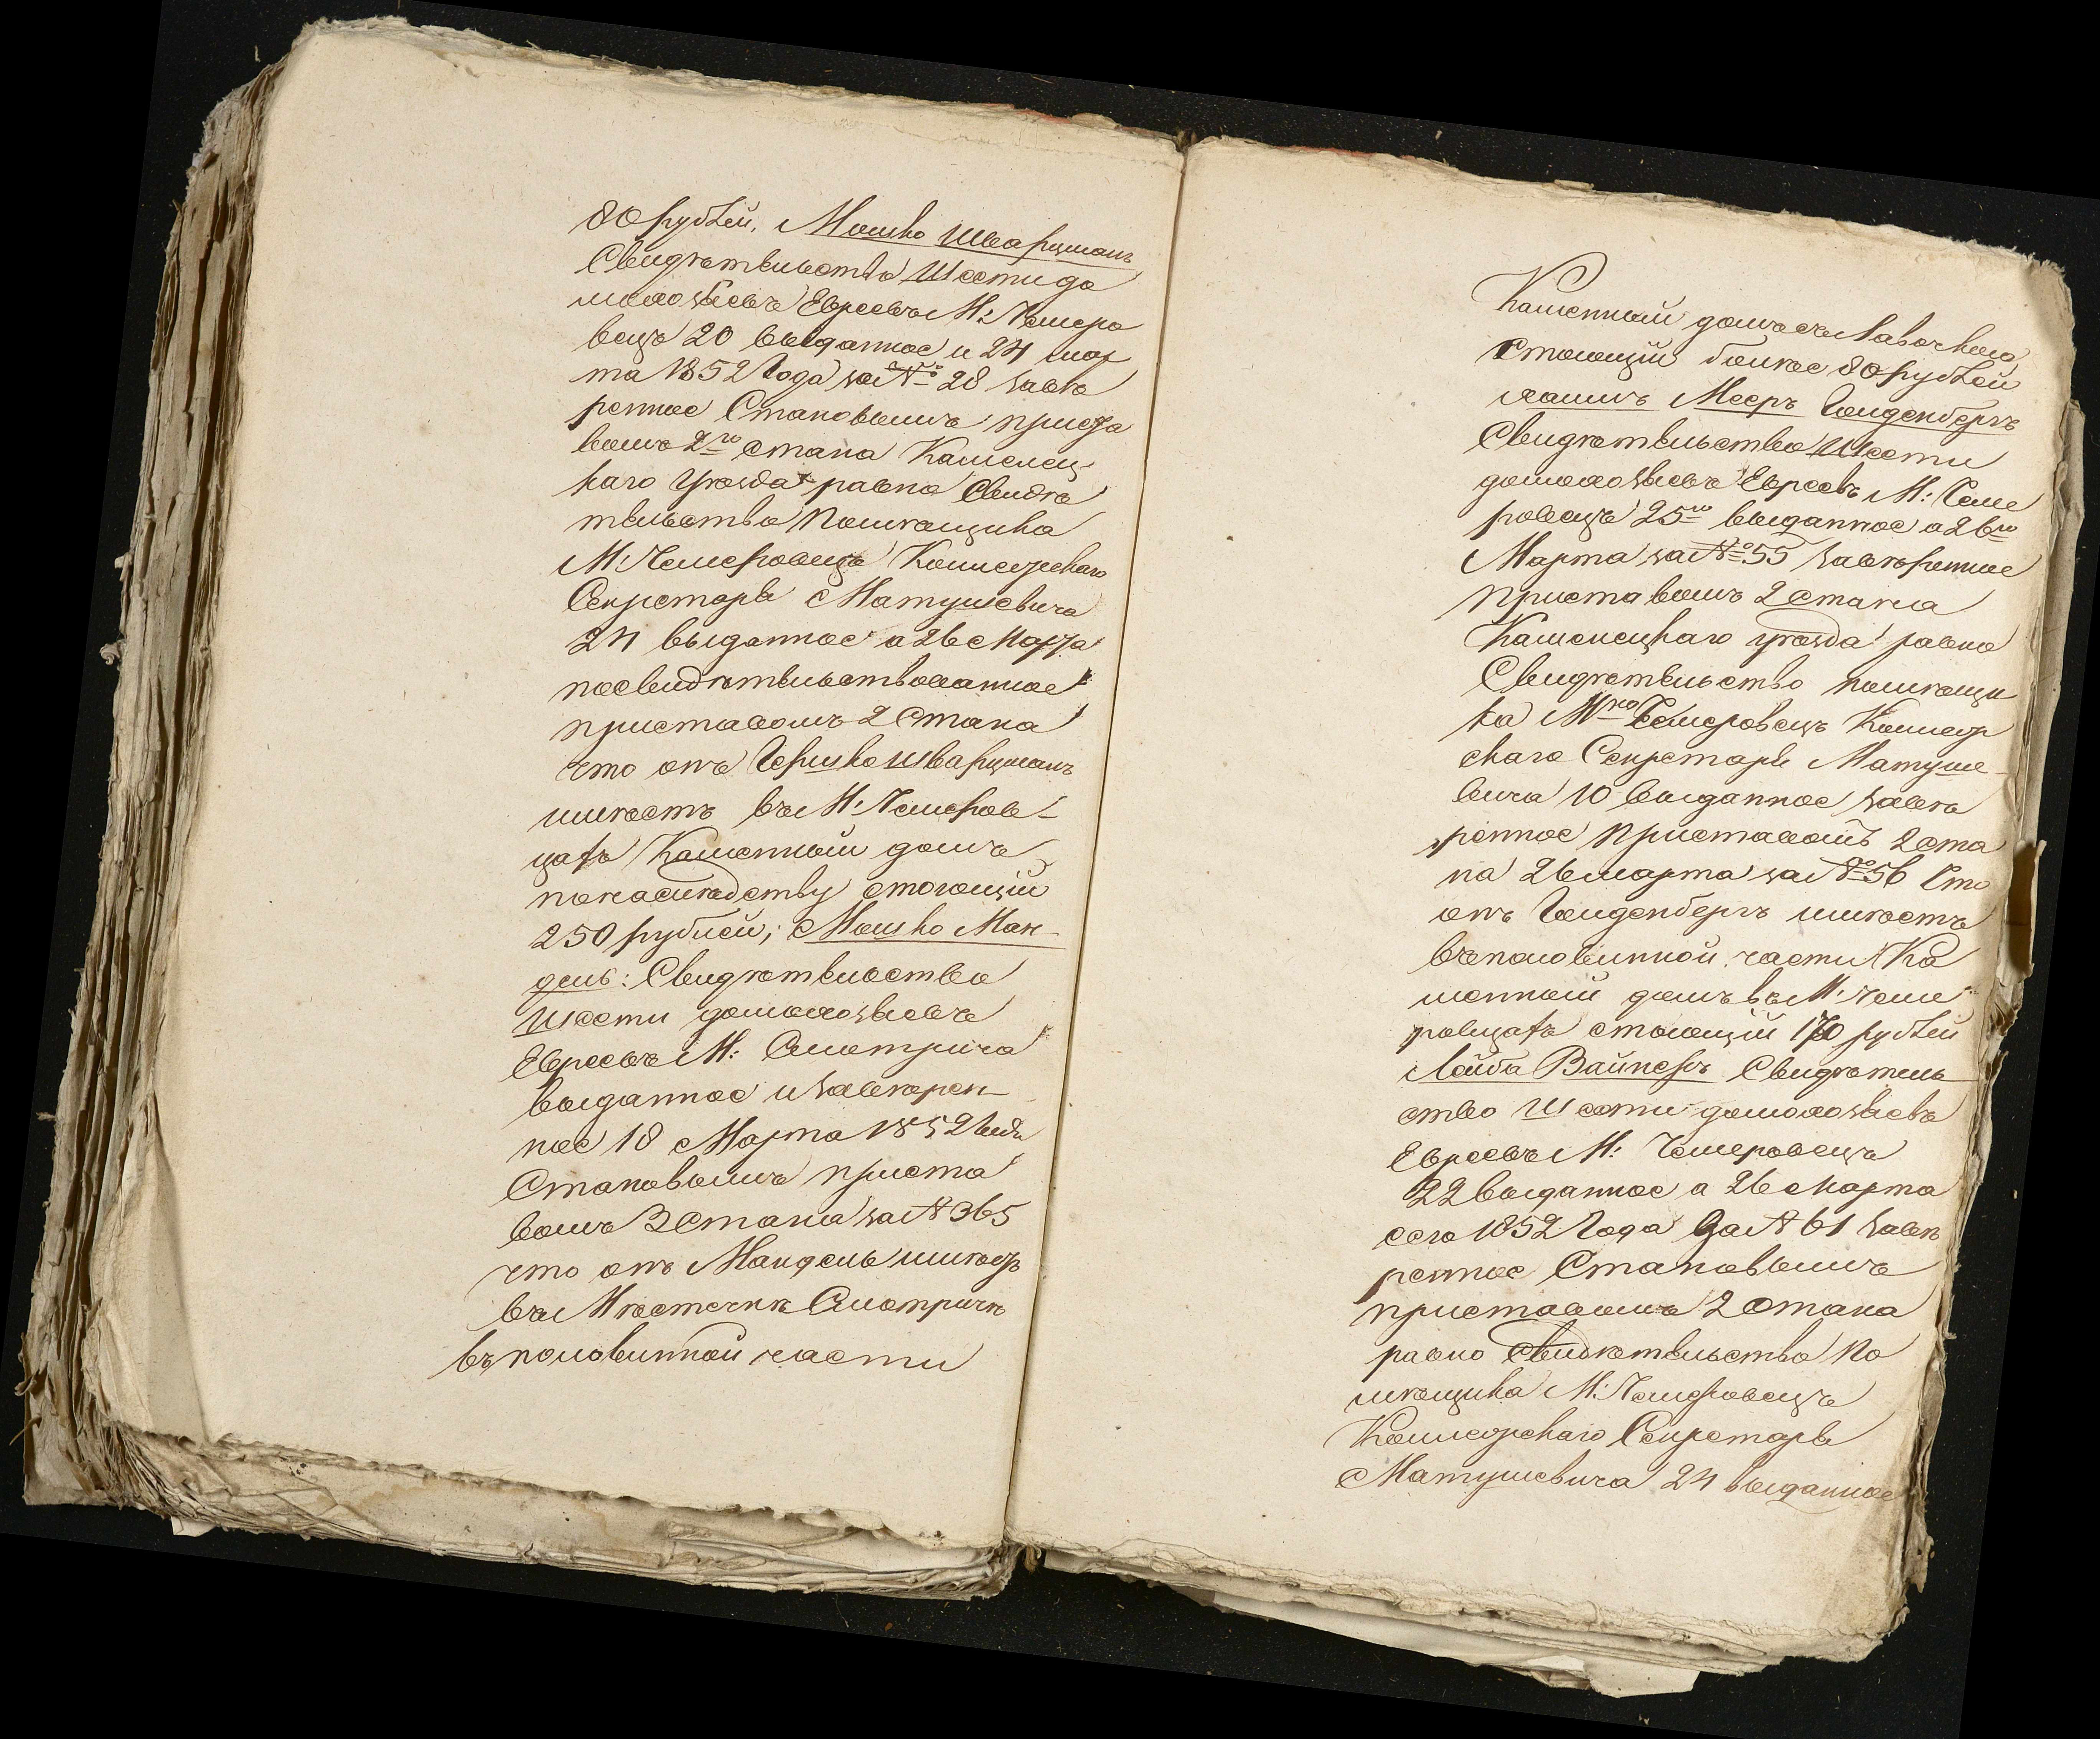 80 рублей, Мошко Шварцманъ
Свидѣтельство Шести до
мохозяевъ Евреевъ М: Чемеро
вецъ 20 выданное и 24 мар
та 1852 года за № 28 завѣ
ренное Становымъ приста
вомъ 2го стана Каменец
каго уѣзда равно Свидѣ
тельство Помѣщика
М: Чемеровецъ Коллежскаго
Секретаря Матушевича
24 выданное а 26 Марта
посвидѣтельствованное
приставомъ 2 Стана
что онъ Гершко Шварцманъ
имѣетъ въ М: Чемеров-
цахъ Каменный домъ
по наслѣдству стоющій
250 рублей; Мошко Ман-
дель: Свидѣтельство
Шести домохозяевъ
Евреевъ М: Смотрича
выданное и завѣрен-
ное 18 Марта 1852 года
Становымъ приста
вомъ 3 Стана за № 365
что онъ Мандель имѣетъ
въ Мѣстечкѣ Смотричѣ
въ половинной части
Каменный домъ съ Лавочкою
стоющій болѣе 80 рублей
Мееръ Гольденбергъ
Свидѣтельство Шести
домохозяевъ Евреевъ М: Чеме
ровецъ 25го выданное а 26го
Марта за № 55 завѣренное
Приставомъ 2 стана
Каменецкаго уѣзда равно
Свидѣтельство помѣщи
ка М-ка Чемеровецъ Коллеж
скаго Секретаря Матуше-
вича 10 выданное завѣ
ренное Приставомъ 2 ста
на 26 марта за № 56 Что
онъ Гольденбергъ имѣетъ
въ половинной части Ка
менный домъ въ М: Чеме-
ровцахъ стоющій 170 рублей
Лейба Вайнеръ Свидѣтель
ство Шести домохозяевъ
Евреевъ М: Чемеровецъ
22 выданное а 26 Марта
сего 1852 года За № 61 завѣ
ренное Становымъ
приставомъ 2 стана
равно Свидѣтельство По
мѣщика М: Чемеровецъ
Коллежскаго Секретаря
Матушевича 24 выданное